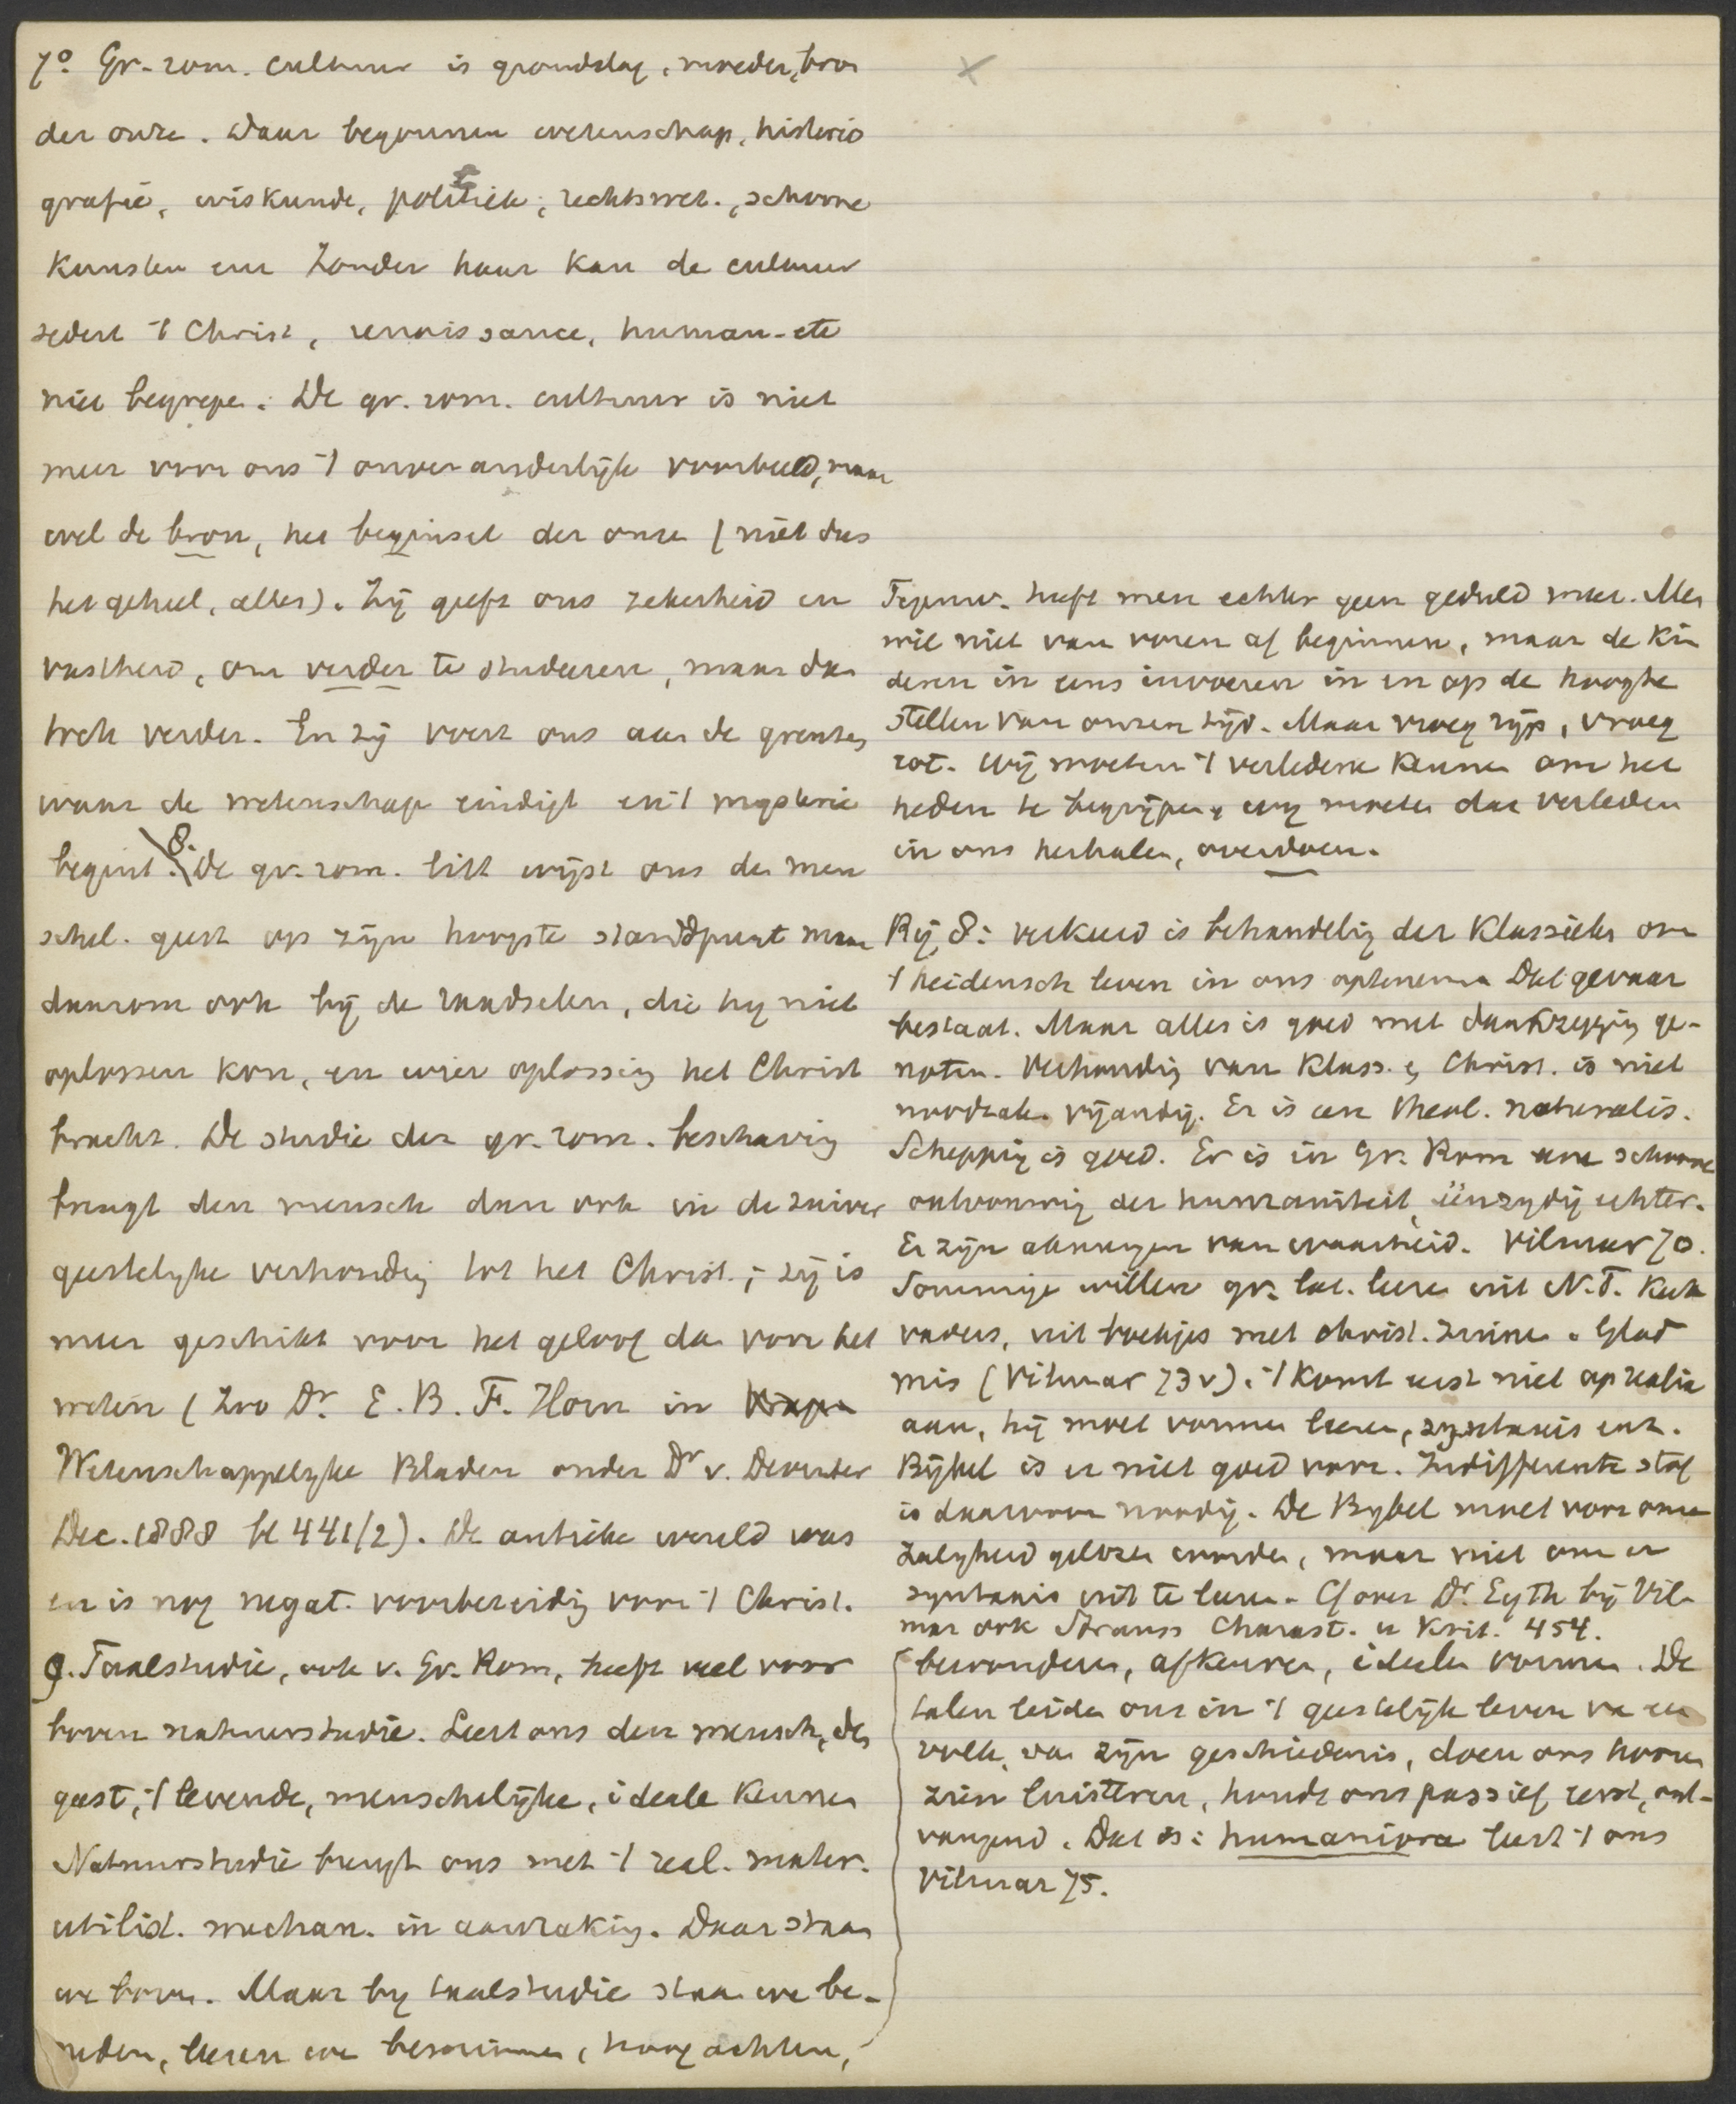 7°. Gr-rom. cultuur is grondslag, moeder, bron
der onze. Daar begonnen wetenschap, historio
grafie, wiskunde, politiek, rechtswet., schoone
kunsten enz Zonder haar kan de cultuur
sedert 't Christ, renaissance, human-etc
niet begrepen. De gr. rom. cultuur is niet
meer voor ons 't onveranderlijk voorbeeld, maar
wel de bron, het beginsel der onze (niet dus
het geheel, alles). Zij geeft ons zekerheid en
vastheid, om verder te studeeren, maar dan
toch verder. En zij voert ons aan de grenzen
waar de wetenschap eindigt en 't mysterie
begint. 8. De gr. rom. litt wijst ons den men
schel. geest op zijn hoogste standpunt maar
daarom ook bij de raadselen, die hij niet
oplossen kon, en wier oplossing het Christ
bracht. De studie der gr. rom. beschaving
brengt den mensch dan ook in de zuiver
geestelijke verhouding tot het Christ.; zij is
meer geschikt voor het geloof dan voor het
weten (zoo Dr. E. B. F. Horn in
Wetenschappelijke Bladen onder Dr v. Deventer
Dec. 1888 bl 441/2). De antieke wereld was
en is nog negat. voorbereiding voor 't Christ.
9. Taalstudie, ook v. Gr. Rom, heeft veel voor
boven natuurstudie. Leert ons den mensch, den
geest, 't levende, menschelijke, ideale kennen
Natuurstudie brengt ons met 't real. mater.
utilist. mechan. in aanraking. Daar staan
we boven. Maar bij taalstudie staan we be-
neden, leeren we bewonderen, hoog achten,
Tegenw. heeft men echter geen geduld meer. Men
wil niet van voren af beginnen, maar de kin
deren in eens invoeren in en op de hoogte
stellen van onzen tijd. Maar vroeg rijp, vroeg
rot. Wij moeten 't verledene kennen om het
heden te begrijpen, wij moeten dat verleden
in ons herhalen, overdoen.
Bij 8: verkeerd is behandeling der Klassieken om
't heidensch leven in ons opnemen Dat gevaar
bestaat. Maar alles is goed met dankzegging ge-
noten. Verhouding van Klass. en Christ. is niet
noodzak. vijandig. Er is een theol. naturalis.
Schepping is goed. Er is in Gr. Rom een schoone
ontvouwing der humaniteit, eenzijdig echter.
Er zijn aknungen van waarheid. Vilmar 70.
Sommige willen gr. lat. leeren uit N.T. Kerk
vaders, uit boekjes met christ. zinnen. Glad
mis (Vilmar 73v). 't Komt eerst niet op realia
aan, hij moet vormen leeren, syntaxis enz.
Bijbel is er niet goed voor. Indifferente stof
is daarvoor noodig. De Bijbel moet voor onze
zaligheid gelezen worden, maar niet om er
syntaxis uit te leeren. Cf over Dr. Eyth bij Vil-
mar ook Strauss Charact. u Krit. 454.
bewonderen, afkeuren, ideelen vormen. De
talen leiden ons in 't geestelijk leven van een
volk, van zijn geschiedenis, doen ons hooren
zien luisteren, houdt ons passief eerst, ont-
vangend. Dat is: humaniora leert 't ons
Vilmar 75.